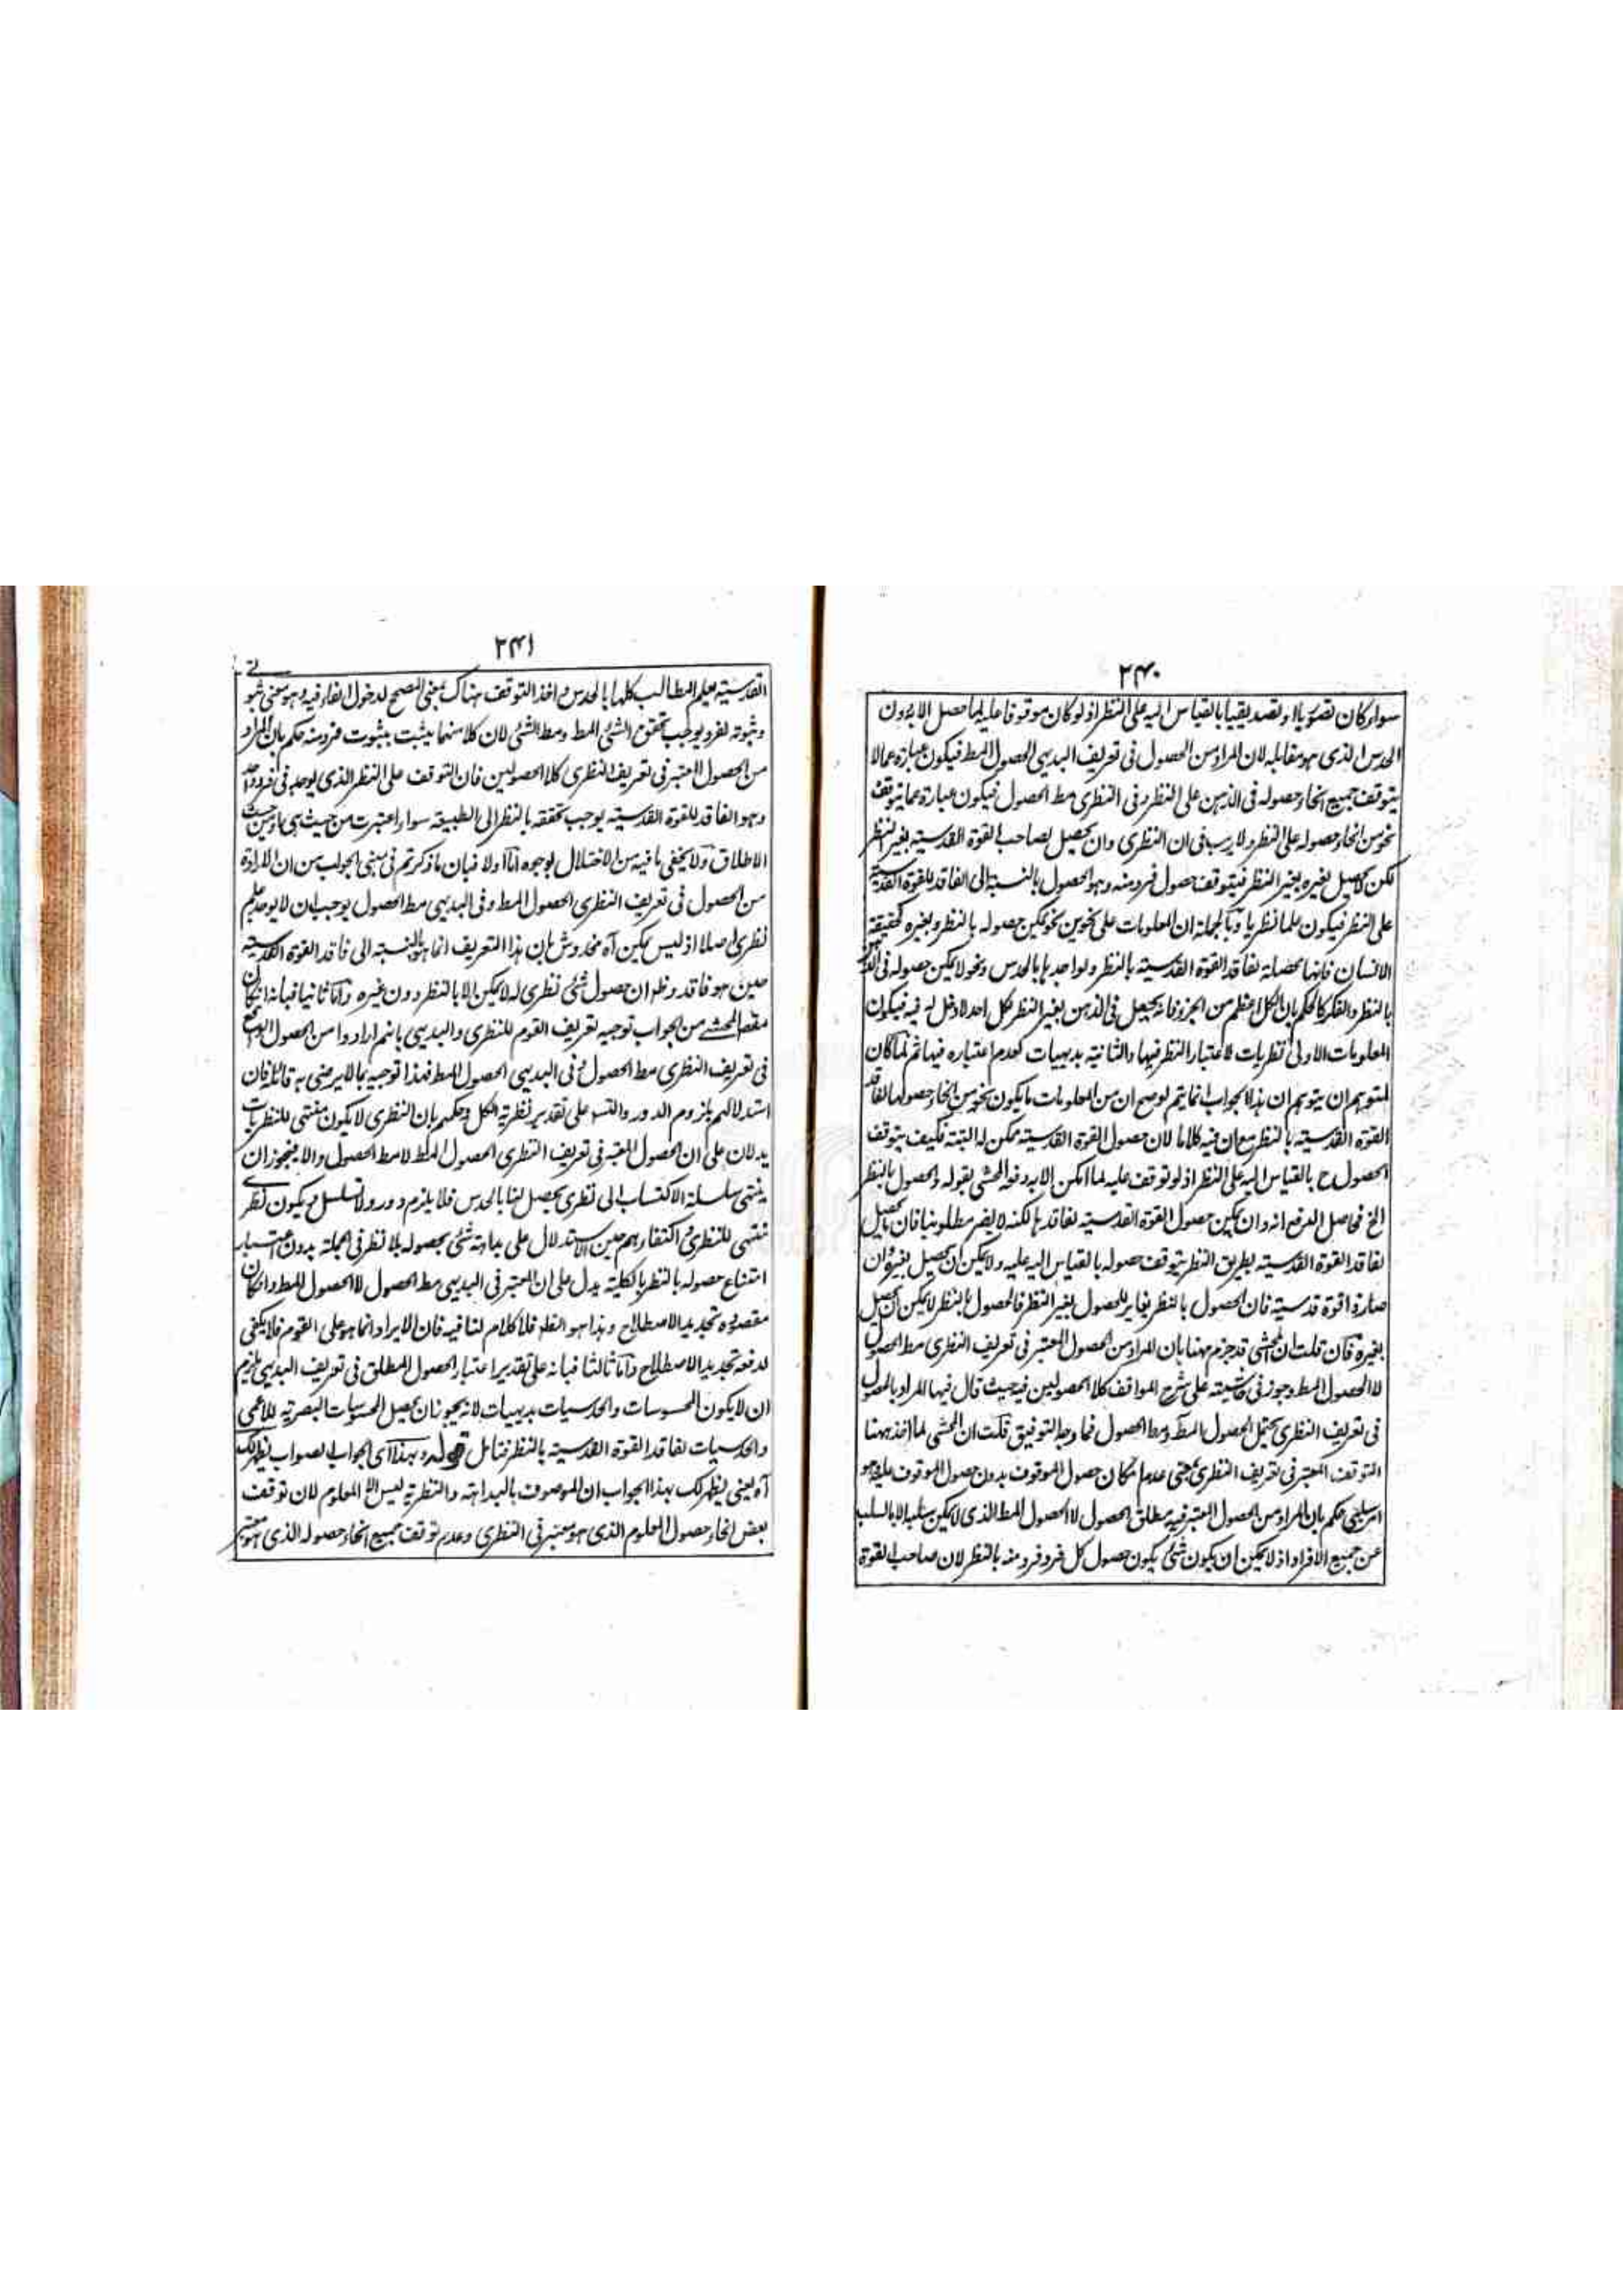 ٢٤٠
سواء كان تصوريا او تصديقيا بالقياس اليه على النظر اذ لو كان موقوفا عليه لما حصل الا بدون
الحدس الذى هو مقابله لان المراد من الحصول فى تعريف البديهى الحصول المط فيكون عبارة عما لا
يتوقف جميع انحاء حصوله فى الذهن على النظر وفى النظرى مط الحصول فيكون عبارة عما يتوقف
نحو من انحاء حصوله على النظر ولا ريب فى ان النظرى وان يحصل لصاحب القوة القدسية بغير النظر
لكن لا يحصل لغيره بغير النظر فيتوقف حصول فرد منه وهو الحصول بالنسبة الى الفاقد للقوة القدسية
على النظر فيكون علما نظريا وبالجملة ان المعلومات على نحوين نحو يمكن حصوله بالنظر وبغيره كحقيقة
الانسان فانها محصلة لفاقد القوة القدسية بالنظر ولواجدها بالحدس ونحو لا يمكن حصوله فى الذهن
بالنظر والفكر كالحكم بان الكل اعظم من الجزء فانه يحصل فى الذهن بغير النظر لكل احد لا دخل له فيه فيكون
المعلومات الاولى نظريات لاعتبار النظر فيها والثانية بديهيات لعدم اعتباره فيها ثم لما كان
لمتوهم ان يتوهم ان هذا الجواب انما يتم لو صح ان من المعلومات ما يكون نحو من انحاء حصولها لفاقد
القوة القدسية بالنظر مع ان فيه كلاما لان حصول القوة القدسية ممكن له البتة فكيف يتوقف
الحصول ح بالقياس اليه على النظر اذ لو توقف عليه لما امكن الا به دفعه المحشى بقوله والحصول بالنظر
الخ فحاصل الدفع انه وان يمكن حصول القوة القدسية لفاقدها لكنه لا يضر مطلوبنا فان ما يحصل
لفاقد القوة القدسية بطريق النظر يتوقف حصوله بالقياس اليه عليه ولا يمكن ان يحصل بغيره وان
صار ذا قوة قدسية فان الحصول بالنظر يغاير للحصول بغير النظر فالحصول بالنظر لا يمكن ان يحصل
بغيره فان قلت ان المحشى قد جزم ههنا بان المراد من الحصول المعتبر فى تعريف النظرى مط الحصول
لا الحصول المط وجوز فى حاشيته على شرح المواقف كلا الحصولين فيه حيث قال فيها المراد بالحصول
فى تعريف النظرى يحتمل الحصول المط ومط الحصول فما وجه التوفيق قلت ان المحشى لما اخذ ههنا
التوقف المعتبر فى تعريف النظرى بمعنى عدم امكان حصول الموقوف بدون حصول الموقوف عليه وهو
امر سلبى حكم بان المراد من الحصول المعتبر فيه مطلق الحصول لا الحصول المط الذى لا يمكن سلبه الا بالسلب
عن جميع الافراد اذ لا يمكن ان يكون شئ يكون حصول كل فرد فرد منه بالنظر لان صاحب القوة
٢٤١
القدسية يعلم المطالب كلها بالحدس واخذ التوقف هناك بمعنى المصحح لدخول الفاء فيه وهو معنى ثبوتى
وثبوته لفرد يوجب تحقق الشئ المط ومط الشئ لان كلا منهما يثبت بثبوت فرد منه حكم بان المراد
من الحصول المعتبر فى تعريف النظرى كلا الحصولين فان التوقف على النظر الذى يوجد فى فرد واحد
وهو الفاقد للقوة القدسية يوجب تحققه بالنظر الى الطبيعة سواء اعتبرت من حيث هى او من حيث
الاطلاق ولا يخفى ما فيه من الاختلال بوجوه اما اولا فبان ما ذكرتم فى مبنى الجواب من ان الارادة
من الحصول فى تعريف النظرى الحصول المط وفى البديهى مط الحصول يوجب ان لا يوجد علم
نظرى اصلا اذ ليس يمكن آه مخدوش بان هذا التعريف انما هو بالنسبة الى فاقد القوة القدسية
حين هو فاقد وظ ان حصول شئ نظرى له لا يمكن الا بالنظر دون غيره واما ثانيا فبانه ان كان
مقص المحشى من الجواب توجيه تعريف القوم للنظرى والبديهى بانهم ارادوا من الحصول الواقع
فى تعريف النظرى مط الحصول وفى البديهى الحصول المط فهذا توجيه بما لا يرضى به قائله فان
استدلالهم بلزوم الدور والتس على تقدير نظرية الكل وحكمهم بان النظرى لا يكون منتهى للنظريات
يدلان على ان الحصول المعتبر فى تعريف النظرى الحصول المط لا مط الحصول والا فيجوز ان
ينتهى سلسلة الاكتساب الى نظرى يحصل لنا بالحدس فلا يلزم دور ولا تسلسل ويكون نظرى
منتهى للنظرى واكتفاءهم حين الاستدلال على بداهة شئ بحصوله بلا نظر فى الجملة بدون اعتبار
امتناع حصوله بالنظر بالكلية يدل على ان المعتبر فى البديهى مط الحصول لا الحصول المط وان كان
مقصوده تجديد الاصطلاح وهذا هو الظ فلا كلام لنا فيه فان الايراد انما هو على القوم فلا يكفى
لدفعه تجديد الاصطلاح واما ثالثا فبانه على تقدير اعتبار الحصول المطلق فى تعريف البديهى يلزم
ان لا يكون المحسوسات والحدسيات بديهيات لانه يجوز ان يحصل المحسوسات البصرية للاعمى
والحدسيات لفاقد القوة القدسية بالنظر فتامل قوله وبهذا اى الجواب الصواب يظهر لك
آه يعنى يظهر لك بهذا الجواب ان الموصوف بالبداهة والنظرية ليس الا المعلوم لان توقف
بعض انحاء حصول المعلوم الذى هو معتبر فى النظرى وعدم توقف جميع انحاء حصوله الذى هو معتبر